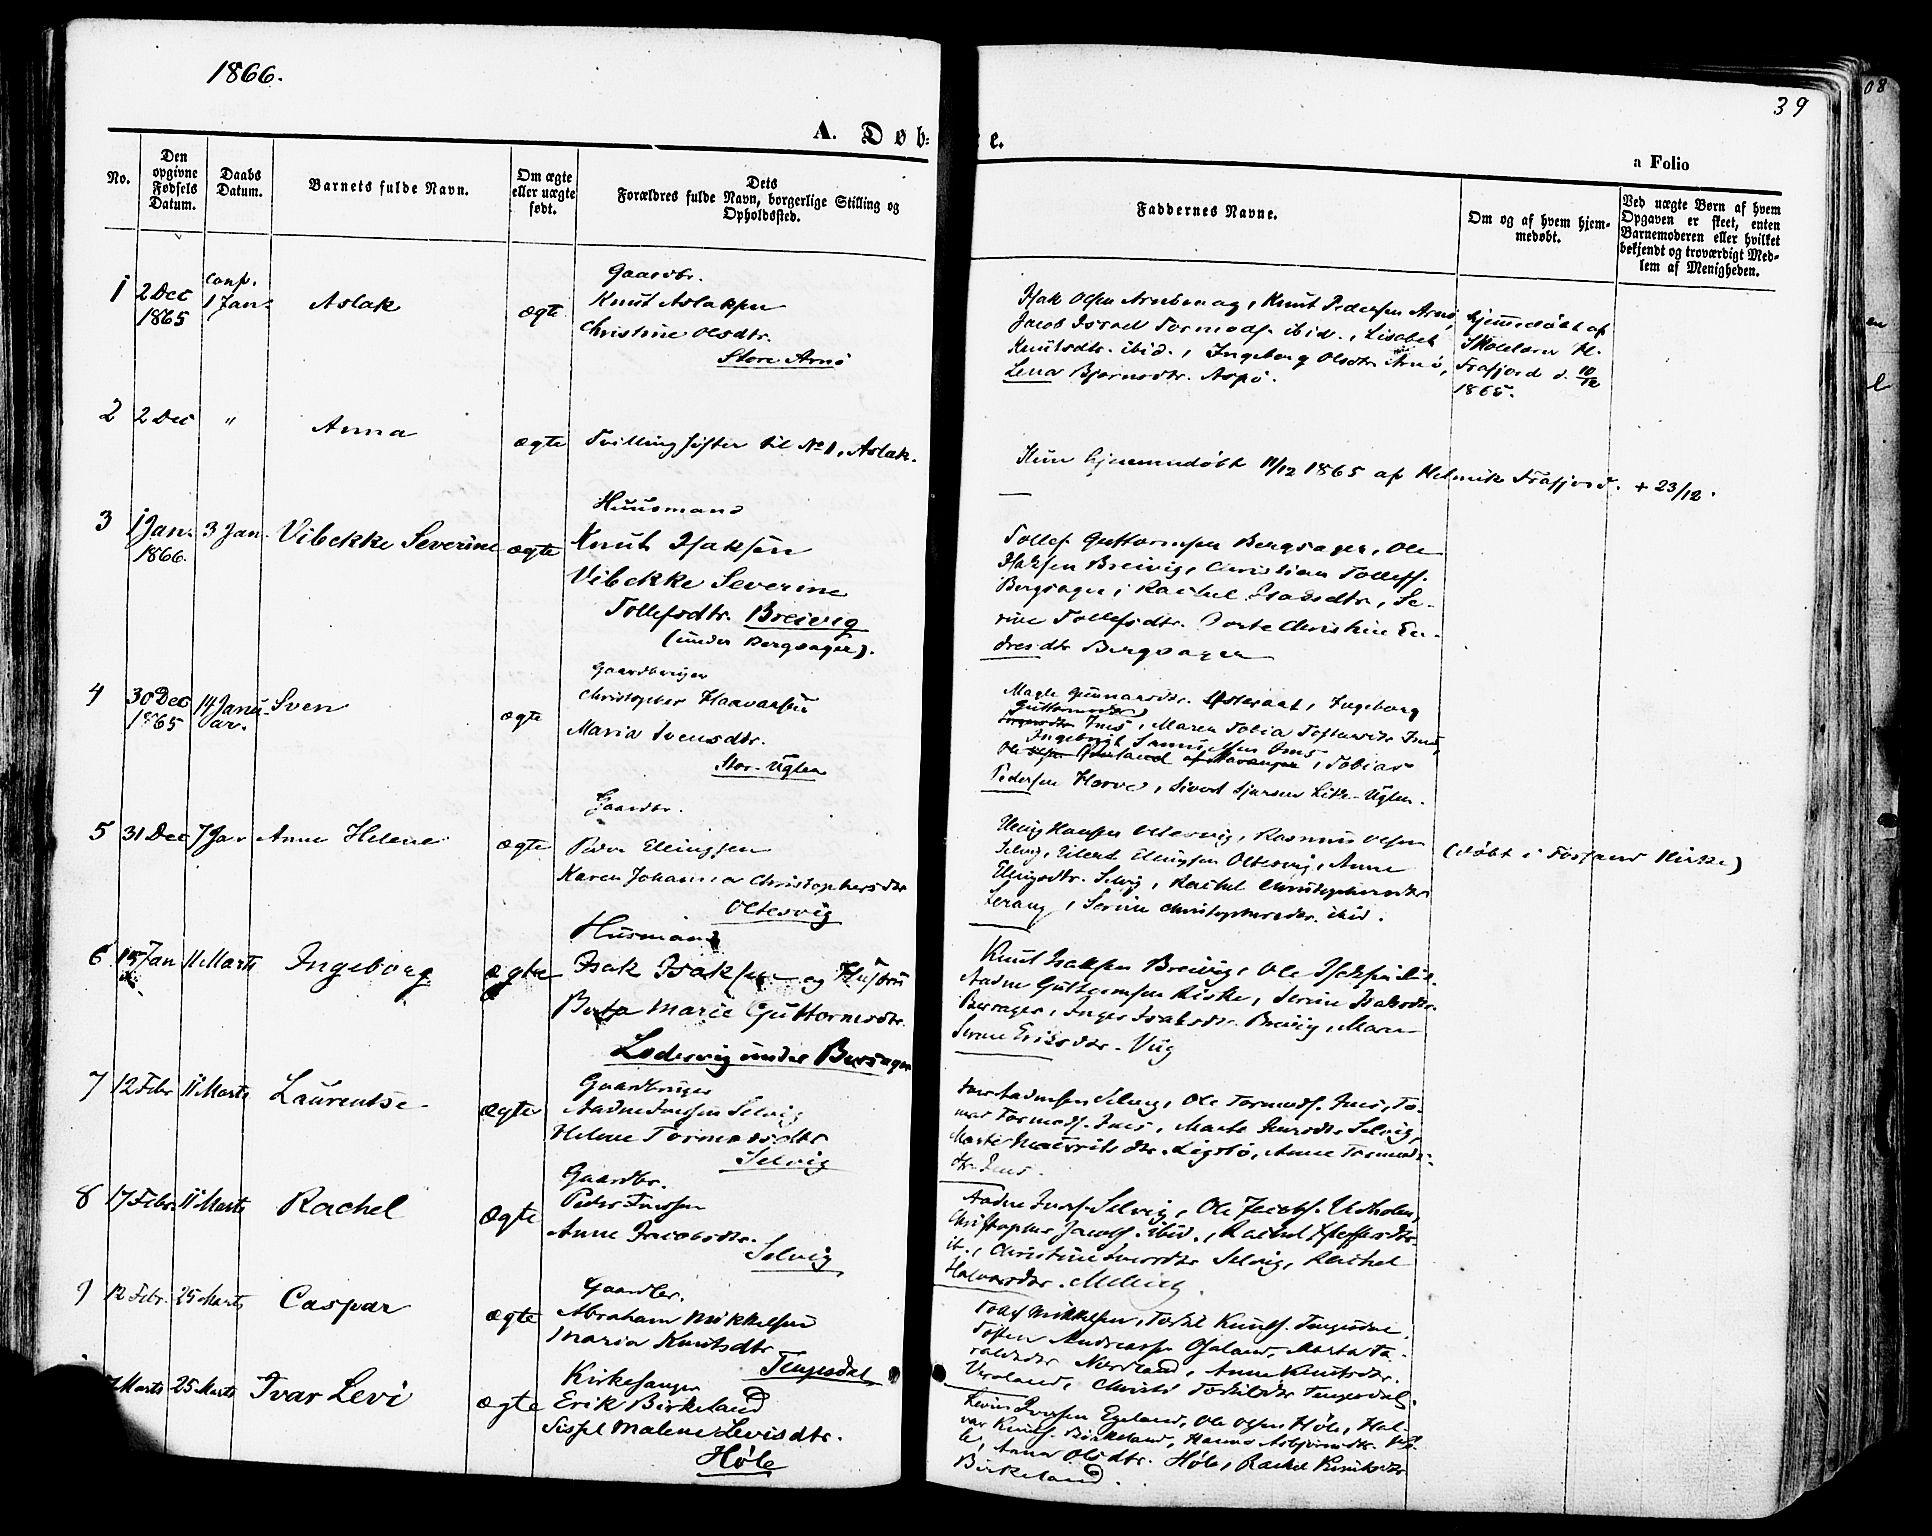 1866.
39
08
A. Døb: e.
a Folio
No.
Den opgivne Fødsels Datum.
Daabs Datum.
Barnets fulde Navn.
Om ægte eller uægte født.
Dets
Forældres fulde Navn, borgerlige Stilling og Opholdssted.
Faddernes Navne.
Om og af hvem hjemmedøbt.
Ved uægte Børn af hvem Opgaven er skeet, enten Barnemoderen eller hvilket bekjendt og troværdigt Medlem af Menigheden.
1
2 Dec 1865
conf. 1 Jan.
Aslak
ægte
Gaardbr.
Knut Aslaksen
Christine Olsdtr.
Store Arnø
Isak Olsen Knut Pedersen Arnø,
Jacob Israel Tormods. ibid., Lisabet
Knutsdtr. ibid., Ingeborg Olsdtr Arnø,
Lena Bjørnsdtr. Aspø.
hjemmedøbt af
Skolelærer H.
Frafjord d. 10/12
1865.
2
2 Dec
"
Anna
ægte
Tvillingsøster til No 1, Aslak.
Kun hjemmedøbt 11/12 1865 af Helmik Frafjord. + 23/12.
3
1 Jan. 1866.
3 Jan.
Vibekke Severine
ægte
Huusmand
Knut Isaksen
Vibekke Severine
Tollefsdtr. Breivig
(under Bergsager).
Tollef Guttormsen Bergsager, Ole
Isaksen Breivig, Christian Tollefs.
Bergsager, Rachel Isaksdtr, Se-
rine Tollefsdtr. Dorte Christine En-
dresdtr Bergsager
4
30 Dec 1865
14 Janu-ar.
Sven
ægte
Gaardbruger
Christopher Haavarsen
Maria Svensdtr.
Stor-Uglen
Magle Gunnarsdtr. Østeraat, Ingeborg
Guttormsdtr
Ims, Maren Tobia Ims,
Ingebrigt Samuelsen Ims
Ole Olsen af Stavanger, Tobias
Pedersen Horve, Sivert Sjursen Litle-Uglen.
5
31 Dec
7 Jan
Anne Helene
ægte
Gaardbr.
Peder Ellingsen
Karen Johanna Christophersdtr
Oltesvig
Hansen Oltesvig, Rasmus Olsen
Selvig, Eilert Ellingsen Oltesvig, Anne
Ellingsdtr. Selvig, Rachel Christophersdtr
Serine Christophersdtr. ibid.
(døbt i Forsand Kirke)
6
15 Jan
11 Marts
Ingeborg
ægte
Husmand
Isak Isaksen og Hustru
Berta Marie Guttormsdtr.
Lodesvig under Bersagen
Knut Isaksen Breivig, Ole Isaksen
Aadne Guttormsen Riske, Serine Isaksdtr.
Bersagen, Inger Isaksdtr. Breivig, Maren
Serine Eriksdtr. Viig
7
12 Febr
11 Marts
Laurentse
ægte
Gaardbruger
Aadne Iversen Selvig
Helene Tormodsdtr
Selvig
Iver Aadnesen Selvig, Ole Tormods. Ims, To-
mas Tormods. Ims, Marte Iversdtr Selvig,
Marte Mauritsdtr. Anne Tormods-
dtr. Ims.
8
17 Febr.
11 Marts
Rachel
Ægte
Gaardbr.
Peder Iversen
Anne Jacobsdtr.
Selvig
Aadne Ivers. Selvig, Ole Jacobs.
Christopher Jacobs. ibid., Rachel
ib., Christine Iversdtr Selvig, Rachel
Halvorsdtr.
9
12 Febr.
25 Marts
Caspar
ægte
Gaardbr.
Abraham Mikkelsen
Maria Knutsdtr
Tengesdal
Mikkelsen, Torkel Knuts. Tengesdal,
Tosten Andreas. Marta To-
raldsdtr Nordland, Anne Knutsdtr.
Christi Torkilsdtr Tengesdal.
Marts
25 Marts
Ivar Levi
ægte
Kirkesanger
Erik Birkeland
Sissel Malene Levisdtr.
Høle
Levin Iversen Egeland, Ole Olsen Høle, Hal-
var Knuts. Birkeland, Hanna
le, Anna Olsdtr. Høle, Rachel
Birkeland.